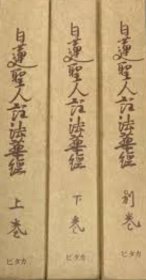 日蓮聖人註法華經
上巻
ピタカ
日蓮聖人註法華經
下巻
ピタカ
日蓮聖人註法華經
別巻
ピタカ